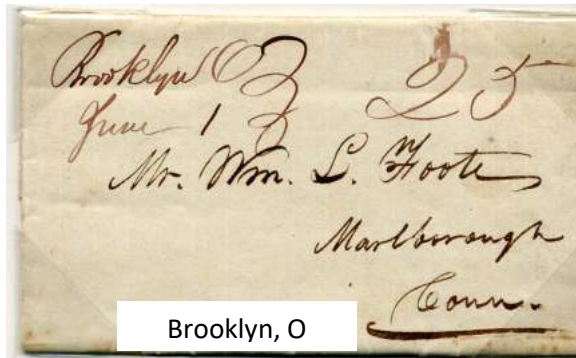 Brooklyn O 25
June 1
Mr. Wm. L. Foote
Marlborough
Conn.
Brooklyn, O